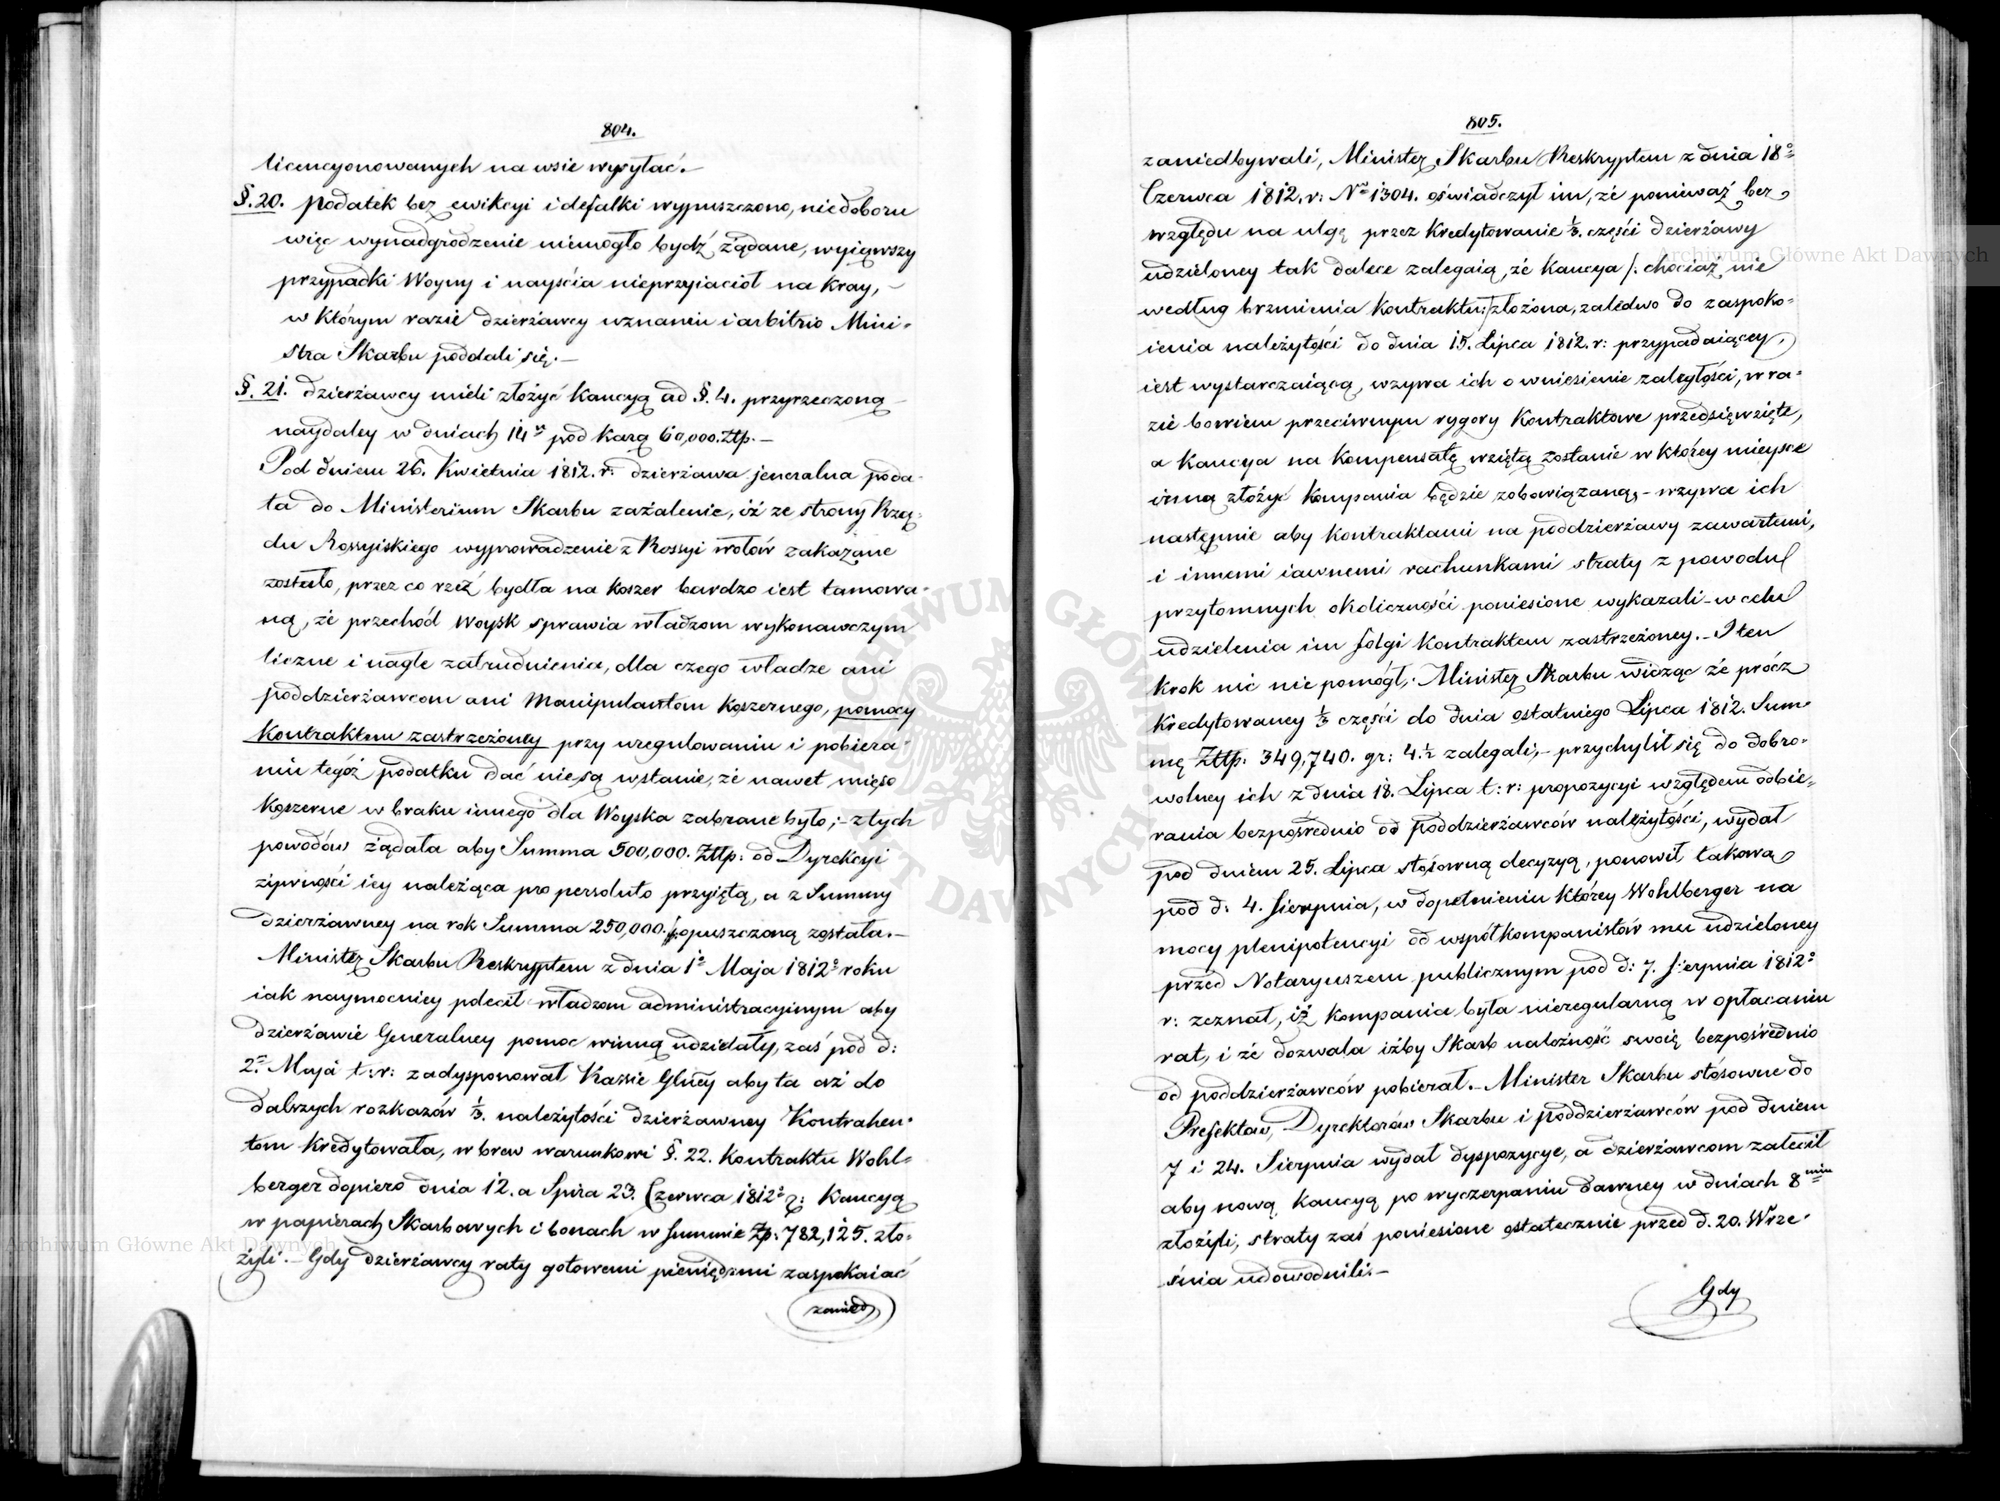 804.
licencyonowanych na wsie wysyłać.–
§. 20. podatek bez ewikcyi i defalki wypuszczono, niedoboru
więc wynadgrodzenie niemogło bydź żądane, wyiąwszy
przypadki Woyny i nayścia nieprzyiaciół na Kray, –
w którym razie dzierżawcy uznaniu i arbitrio Mini-
stra Skarbu poddali się.–
§. 21. dzierżawcy mieli złożyć Kaucyą ad §. 4. przyrzeczoną
naydaley w dniach 14u pod Karą 60,000. Złp.–
Pod dniem 26. Kwietnia 1812. r: dzierżawa jeneralna poda-
ła do Ministerium Skarbu zażalenie, iż ze strony Rzą-
du Rossyiskiego wyprowadzenie z Rossyi wołów zakazane
zostało, przez co rzeź bydła na koszer bardzo iest tamowa-
ną, że przechód Woysk sprawia władzom wykonawczym
liczne i nagłe zatrudnienia, dla czego władze ani
poddzierżawcom ani Manipulantom Koszernego, pomocy
Kontraktem zastrzeżoney przy uregulowaniu i pobiera-
niu tegoż podatku dać nie są wstanie, że nawet mięso
Koszerne w braku innego dla Woyska zabrane było;– z tych
powodów żądała aby Summa 500,000. Złp: od Dyrekcyi
żywności iey należąca pro persoluto przyiętą, a z Summy
dzierżawney na rok Summa 250,000. opuszczoną została.–
Minister Skarbu Reskryptem z dnia 1o Maja 1812o roku
iak naymocniey polecił władzom administracyinym aby
dzierżawie Generalney pomoc winną udzielały, zaś pod d:
2o Maja t: r: zadysponował Kassie Głney aby ta aż do
dalszych rozkazów 1/3. należytości dzierżawney Kontrahen-
tom Kredytowała, wbrew warunkowi §. 22. Kontraktu Wohl-
berger dopiero dnia 12. a Spira 23. Czerwca 1812o r: Kaucyą
w papierach Skarbowych i bonach w Summie Zp: 782,125. zło-
żyli.– Gdy dzierżawcy raty gotowemi pieniędzmi zaspakaiać
zanied
805.
zaniedbywali, Minister Skarbu Reskryptem z dnia 18o
Czerwca 1812. r: No 1304. oświadczył im, że ponieważ bez
względu na ulgę przez Kredytowanie 1/3. części dzierżawy
udzieloney tak dalece zalegaią, że Kaucya /: chociaż nie
według brzmienia Kontraktu:/ złożona, zaledwo do zaspoko-
ienia należytości do dnia 15. Lipca 1812. r: przypadaiącey,
iest wystarczaiącą, wzywa ich o wniesienie zaległości, w ra-
zie bowiem przeciwnym rygory Kontraktowe przedsięwzięte,
a Kaucya na Kompensatę wziętą zostanie w którey mieysce
inną złożyć Kompania będzie zobowiązaną,– wzywa ich
następnie aby Kontraktami na poddzierżawy zawartemi,
i innemi iawnemi rachunkami straty z powodu
przytomnych okoliczności poniesione wykazali– w celu
udzielenia im folgi Kontraktem zastrzeżoney.– I ten
krok nic nie pomógł,– Minister Skarbu widząc że prócz
Kredytowaney 1/3 części do dnia ostatniego Lipca 1812. Sum-
mę Złp: 349,740. gr: 4.1/2 zalegali,– przychylił się do dobro-
wolney ich z dnia 18. Lipca t: r: propozycyi względem odbie-
rania bezpośrednio od poddzierżawców należytości, wydał
pod dniem 25. Lipca stosowną decyzyą, ponowił takową
pod d: 4. Sierpnia, w dopełnieniu którey Wohlberger na
mocy plenipotencyi od współkompanistów mu udzieloney
przed Notaryuszem publicznym pod d: 7. Sierpnia 1812o
r: zeznał, iż Kompania była nieregularną w opłacaniu
rat, i że dozwala iżby Skarb należność swoię bezpośrednio
od poddzierżawców pobierał.– Minister Skarbu stósowne do
Prefektów, Dyrektorów Skarbu i poddzierżawców pod dniem
7 i 24. Sierpnia wydał dyspozycye, a dzierżawcom zalecił
aby nową Kaucyą po wyczerpaniu dawney w dniach 8miu
złożyli, straty zaś poniesione ostatecznie przed d. 20. Wrze-
śnia udowodnili.–
Gdy
Archiwum Główne Akt Dawnych
Archiwum Główne Akt Dawnych
ARCHIWUM GŁÓWNE AKT DAWNYCH